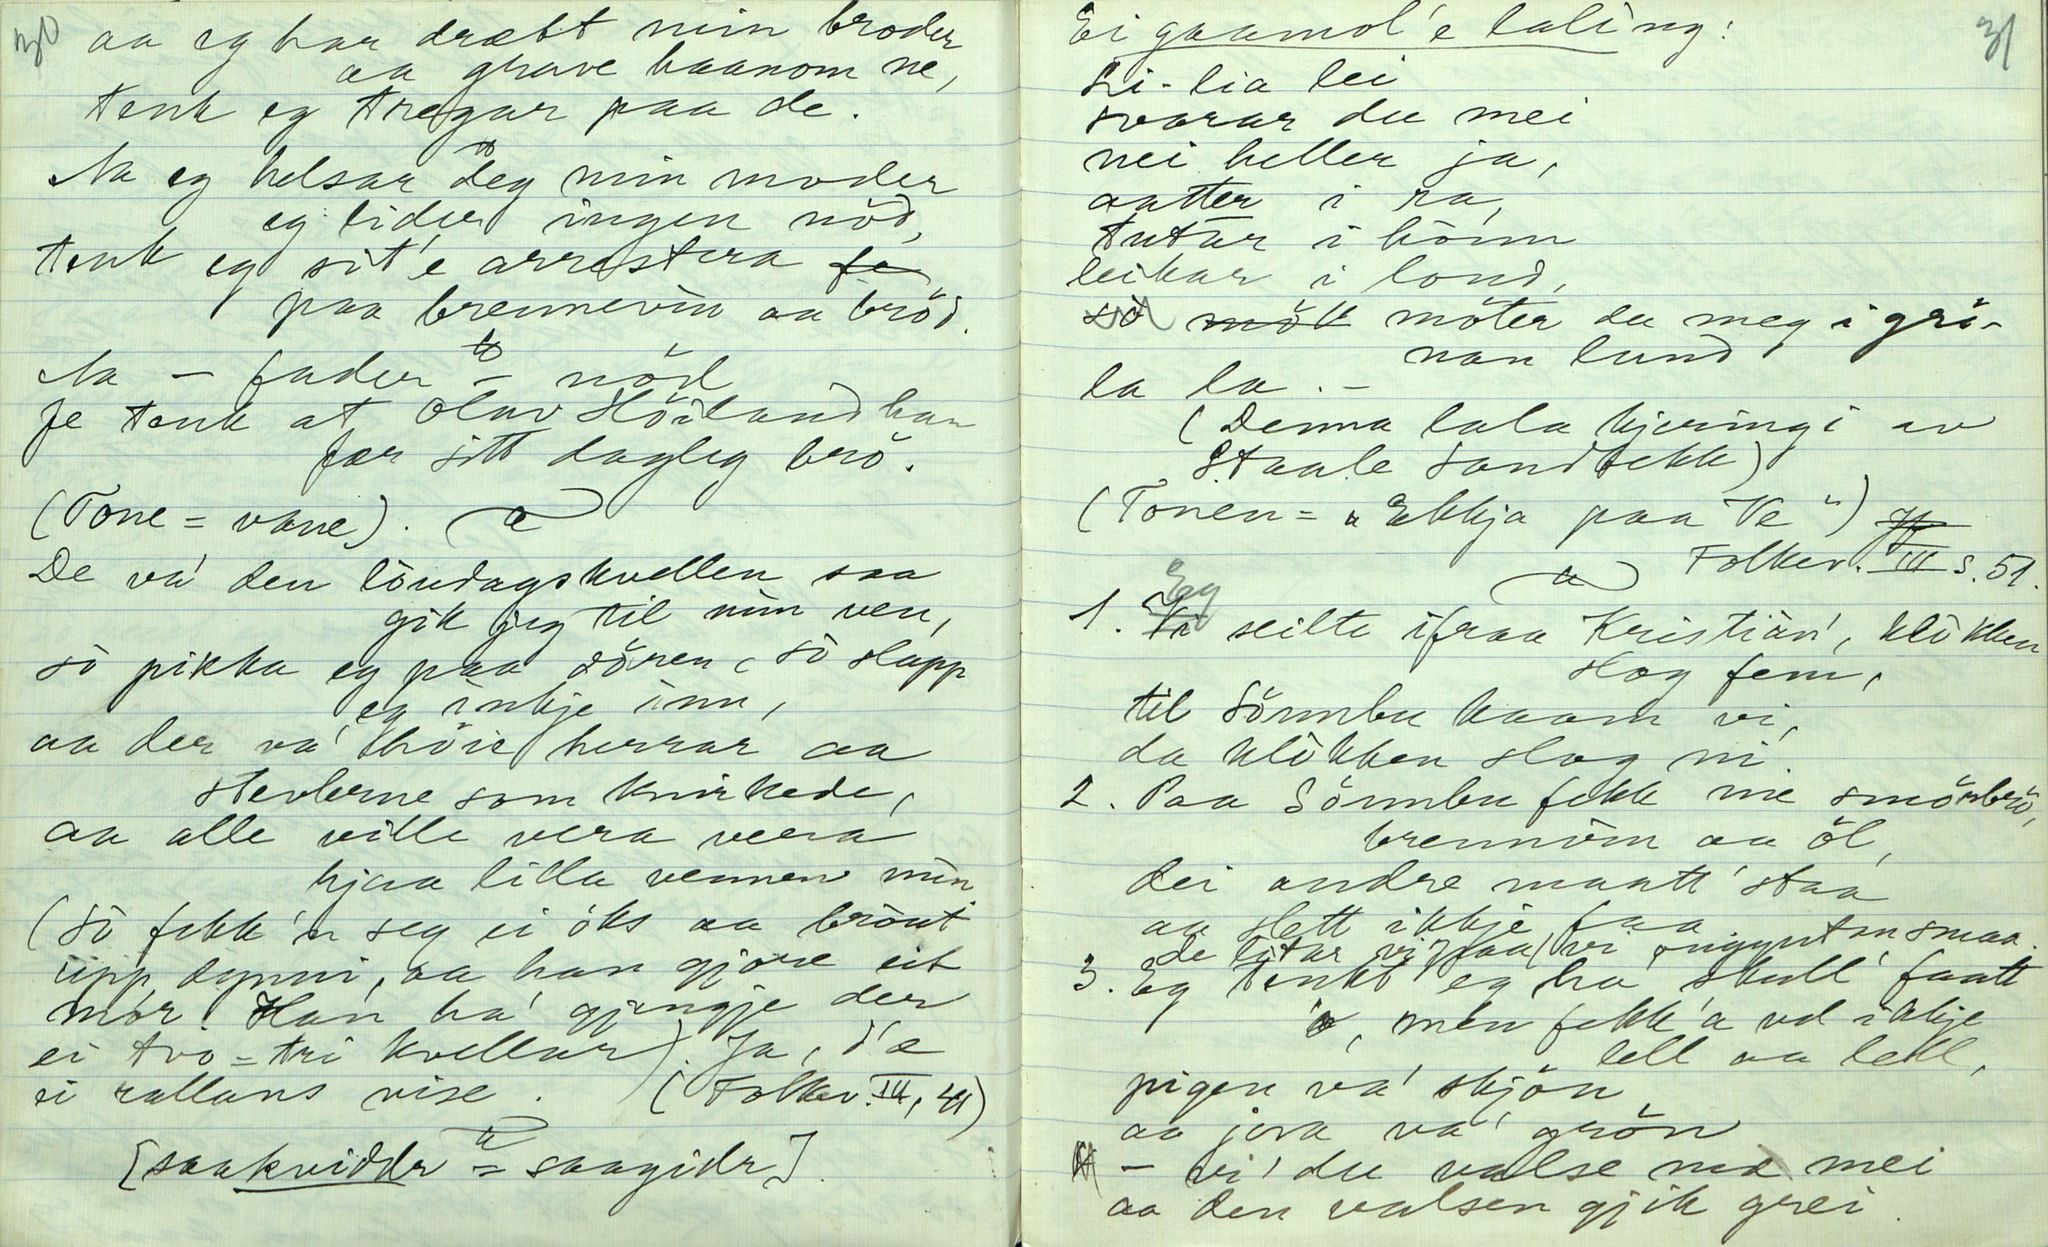 30
aa eg har dræbt min broder
aa grave haanom ne,
tenk eg tregar paa de.
Aa eg helsar deg min moder
eg lider ingen nöd,
tenk eg sit'e arrestera
paa brennevin aa bröd.
Aa – fader – nöd
Je tenk at Olav Höiland han
fær sitt dagleg brö.
(Tone = vane).
De va' den löudagskvellen saa
gik jeg til min ven,
so pikka eg paa dören, so slapp
eg inkje inn,
aa der va' höie herrar aa
stevlerne som knirkede,
aa alle ville vera vera
hjaa lilla vennen min
(So fekk'n seg ei öks aa bröut
upp dynni, aa han gjore eit
mor. Han ha' gjengje der
ei tvo-tri kvellar). Ja, d'æ
ei rallans vise. (Folkev. III, 41)
[saakviddr = saagidr].
31
Ei gaamol'e laling:
Li-lia lei
svarar du mei
nei heller ja,
aatter i ra,
tutar i hönn
leikar i lond,
so mök möter du meg i grö-
nan lund
la la. –
(Denna lala kjeringi av
Staale Sandbekk)
(Tonen = "Ekkja paa Ve")
Folkev. III s. 51.
1. Eg seilte ifraa Kristian', klokken
slog fem,
til Sönnbu kaam vi,
da klokken slog ni.
2. Paa Sönnbu fekk me smörbrö,
brennvin aa öl,
dei andre maatt' staa
aa slett ikkje faa
de litar vi paa, vi smaa.
3. Eg tenkt' eg ha' skull' faatt
'a, men fekk'a vel ikkje
lell aa lell,
pigen va' skjön
aa jora va' grön
– vi' du valse med mei
aa den valsen gjik grei.